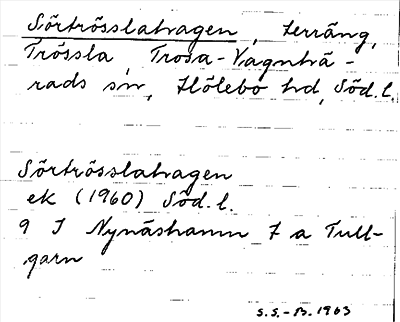 Sörtrösslahagen, terräng,
Trössla, Trosa-Vagnhä-
rads sn, Hölebo hd, Söd.l.
Sörtrösslahagen
ek (1960) Söd.l.
9 I Nynäshamn 7 a Tull-
garn
S.S.-B. 1963